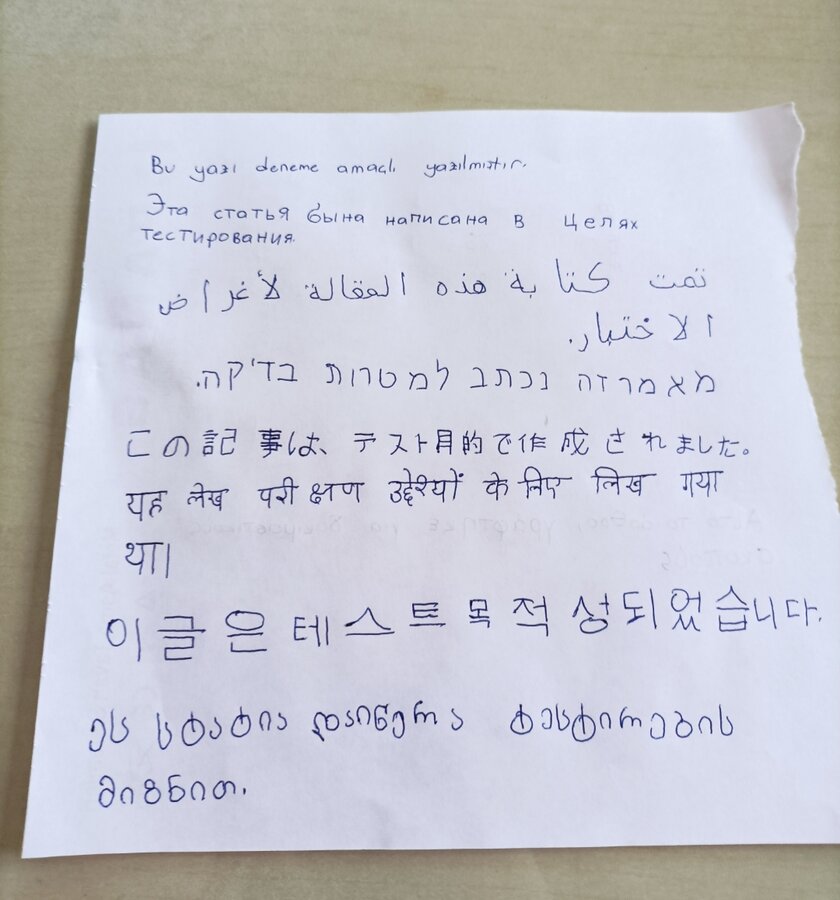 Bu yazı deneme amaçlı yazılmıştır.
Эта статья была написана в целях
тестирования.
تمت كتابة هذه المقالة لأغراض
الاختبار.
מאמר זה נכתב למטרות בדיקה.
この記事は、テスト目的で作成されました。
यह लेख परीक्षण उद्देश्यों के लिए लिख गया
था।
이글은 테스트 목적성되었습니다.
ეს სტატია დაიწერა ტესტირების
მიზნით.